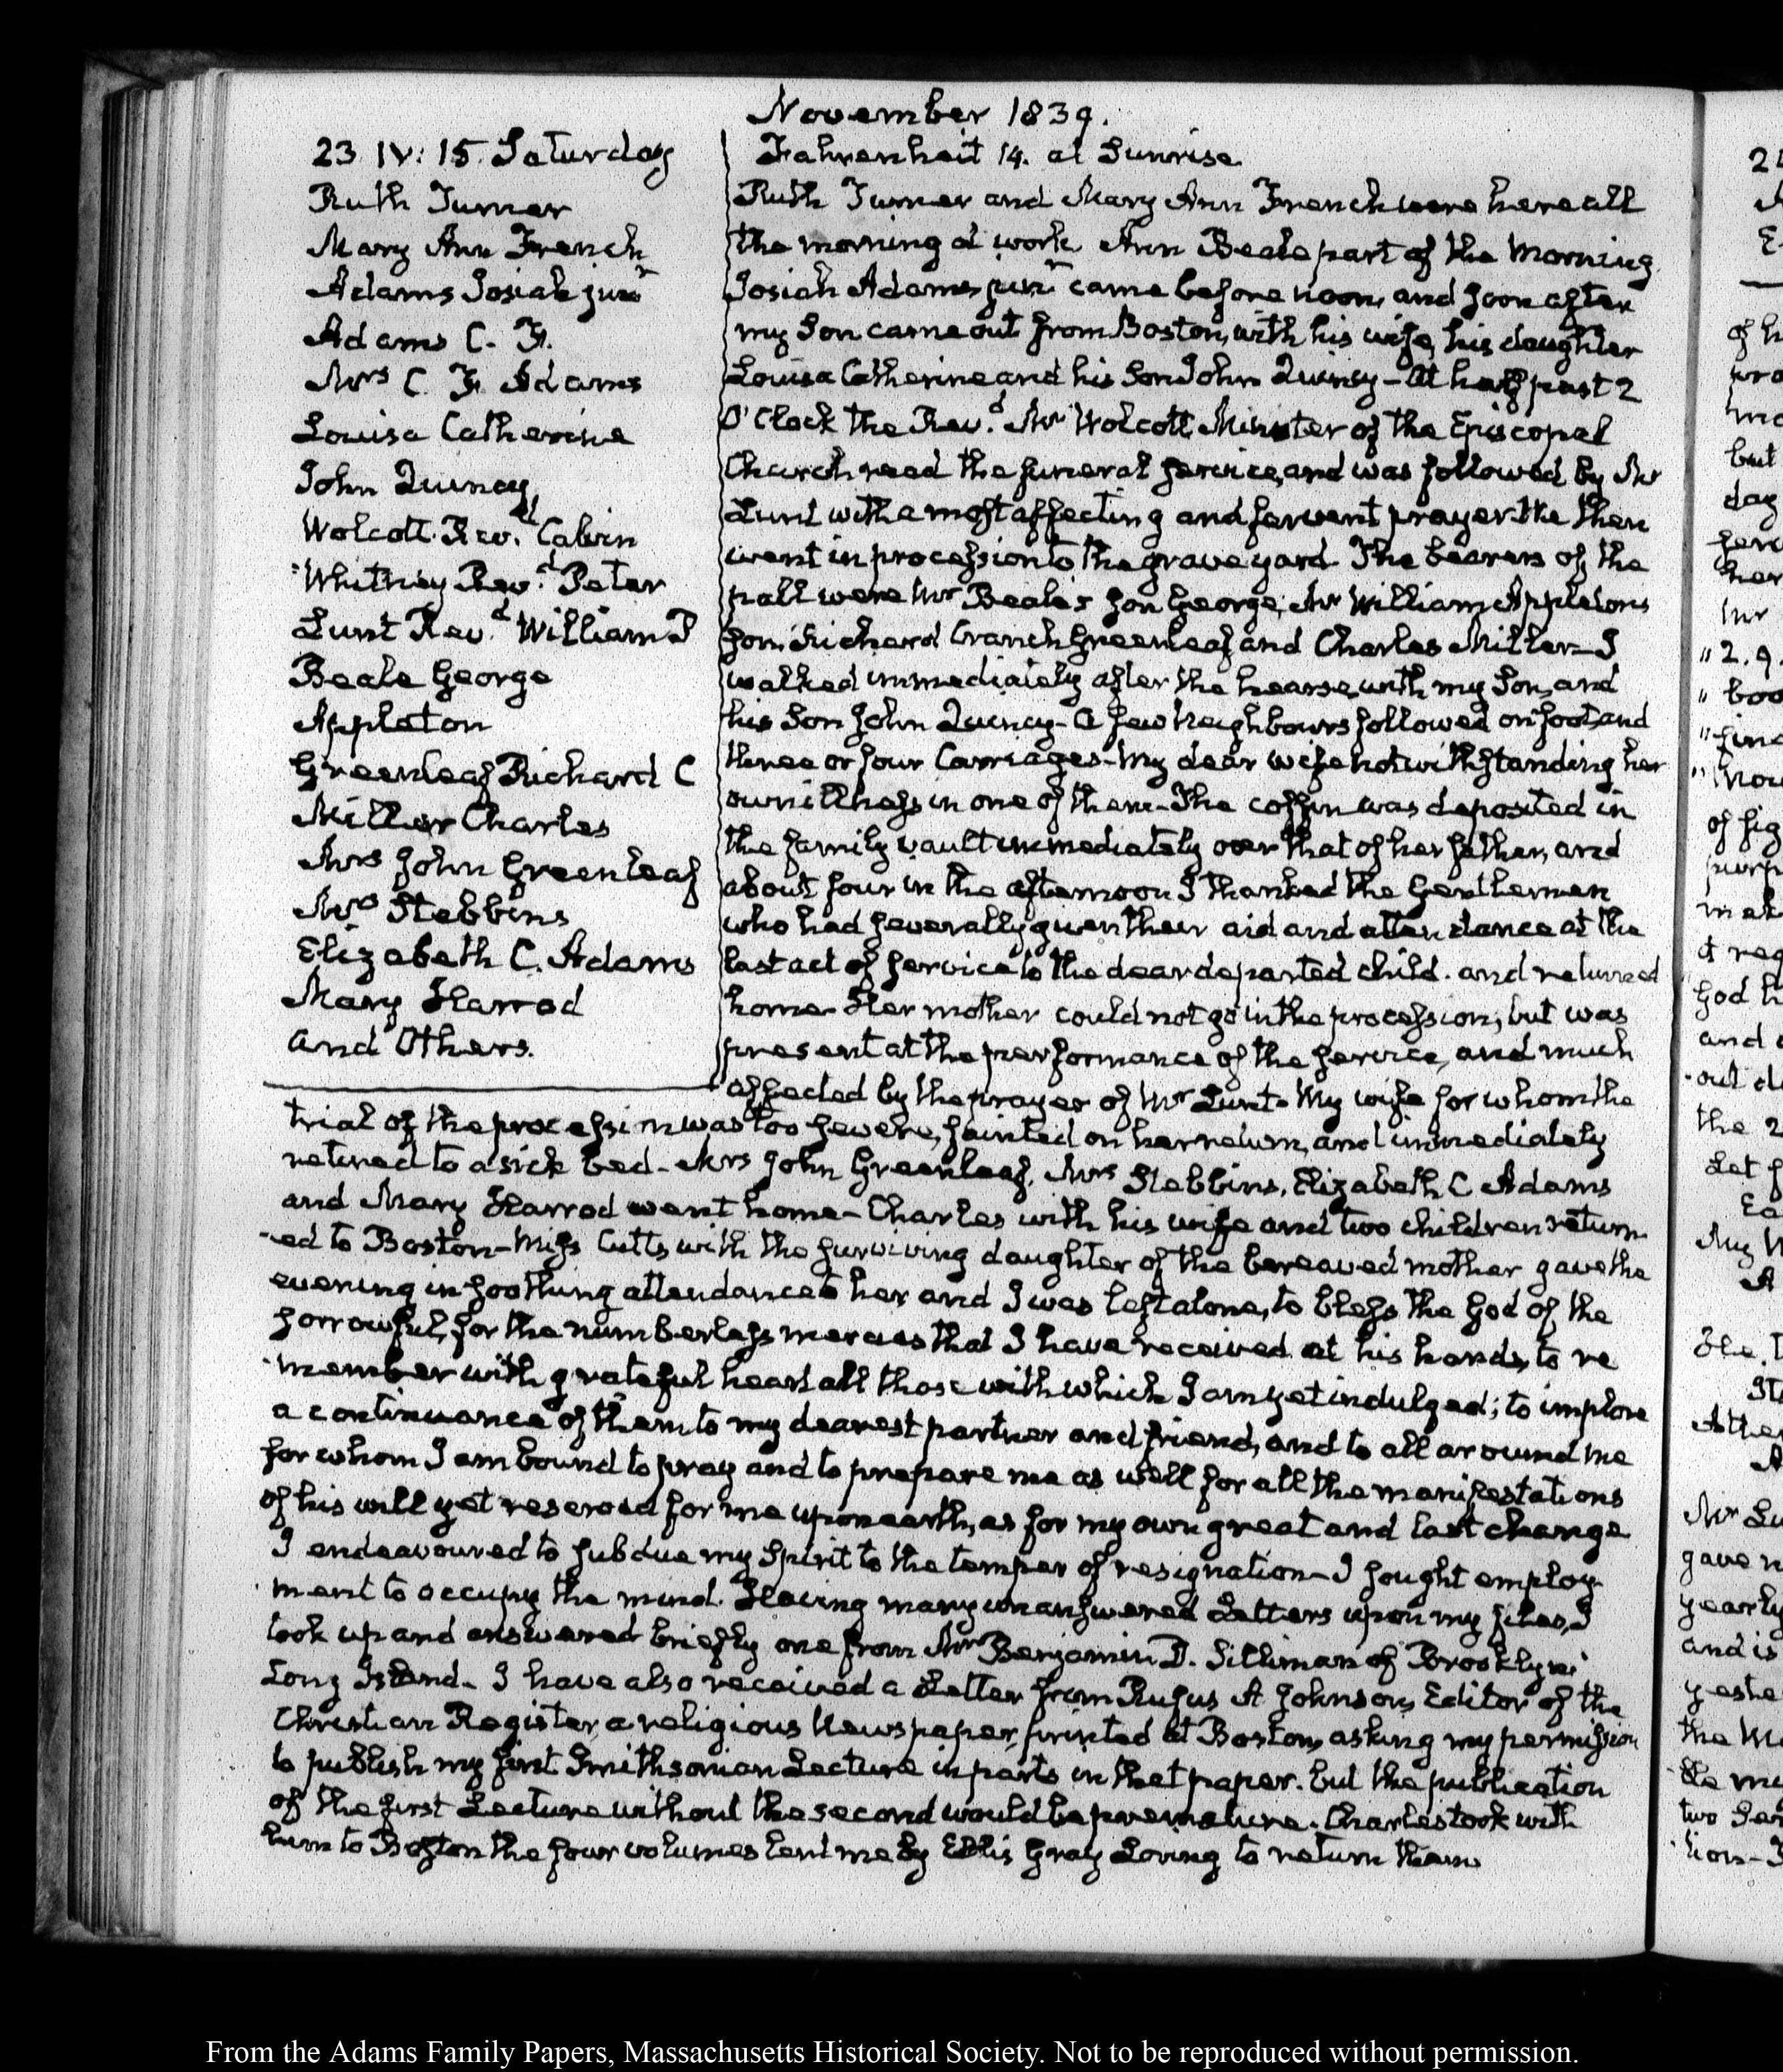 November 1839.
23 IV: 15. Saturday
Ruth Turner
Mary Ann French
Adams Josiah junr
Adams C. F.
Mrs C. F. Adams
Louisa Catherine
John Quincy
Wolcott. Revd. Calvin
Whitney Revd. Peter
Lunt Revd. William P
Beale George
Appleton
Greenleaf Richard C
Miller Charles
Mrs John Greenleaf
Mrs Stebbins
Elizabeth C. Adams
Mary Harrod
and Others.
Fahrenheit 14. at Sunrise.
Ruth Turner and Mary Ann French were here all
the morning at work Ann Beale part of the Morning
Josiah Adams junr came before noon, and soon after
my Son came out from Boston, with his wife, his daughter
Louisa Catherine and his Son John Quincy – At half past 2
O'Clock the Revd. Mr Wolcott Minister of the Episcopal
Church read the funeral service, and was followed by Mr
Lunt with a most affecting and fervent prayer. We then
went in procession to the grave yard. The bearers of the
pall were Mr Beale's son George, Mr William Appletons
son. Richard Cranch Greenleaf and Charles Miller – I
walked immediately after the hearse, with my Son, and
his Son John Quincy – A few neighbours followed on foot, and
three or four Carriages – My dear wife notwithstanding her
own illness in one of them – The coffin was deposited in
the family vault immediately over that of her father, and
about four in the afternoon I thanked the Gentlemen
who had severally given their aid and attendance at the
last act of service to the dear departed child. and returned
home – Her mother could not go in the procession; but was
present at the performance of the service, and much
affected by the prayer of Mr Lunt – My wife for whom the
trial of the procession was too severe, fainted on her return, and immediately
retired to a sick bed – Mrs John Greenleaf, Mrs Stebbins, Elizabeth C Adams
and Mary Harrod went home – Charles with his wife and two children return
-ed to Boston – Miss Cutts with the surviving daughter of the bereaved mother gave the
evening in soothing attendance to her and I was left alone, to bless the God of the
sorrowful, for the numberless mercies that I have received at his hands, to re
-member with grateful heart all those with which I am yet indulged; to implore
a continuance of them to my dearest partner and friend, and to all around me
for whom I am bound to pray and to prepare me as well for all the manifestations
of his will yet reserved for me upon earth, as for my own great and last change
I endeavoured to subdue my Spirit to the temper of resignation – I sought employ-
-ment to occupy the mind. Having many unanswered Letters upon my files, I
took up and answered briefly one from Mr Benjamin D. Silliman of Brooklyn
Long Island – I have also received a Letter from Rufus A Johnson, Editor of the
Christian Register, a religious Newspaper, printed at Boston, asking my permission
to publish my first Smithsonian Lecture in parts in that paper. but the publication
of the first Lecture without the second would be premature. Charles took with
him to Boston the four volumes lent me by Ellis Gray Loring to return them
From the Adams Family Papers, Massachusetts Historical Society. Not to be reproduced without permission.